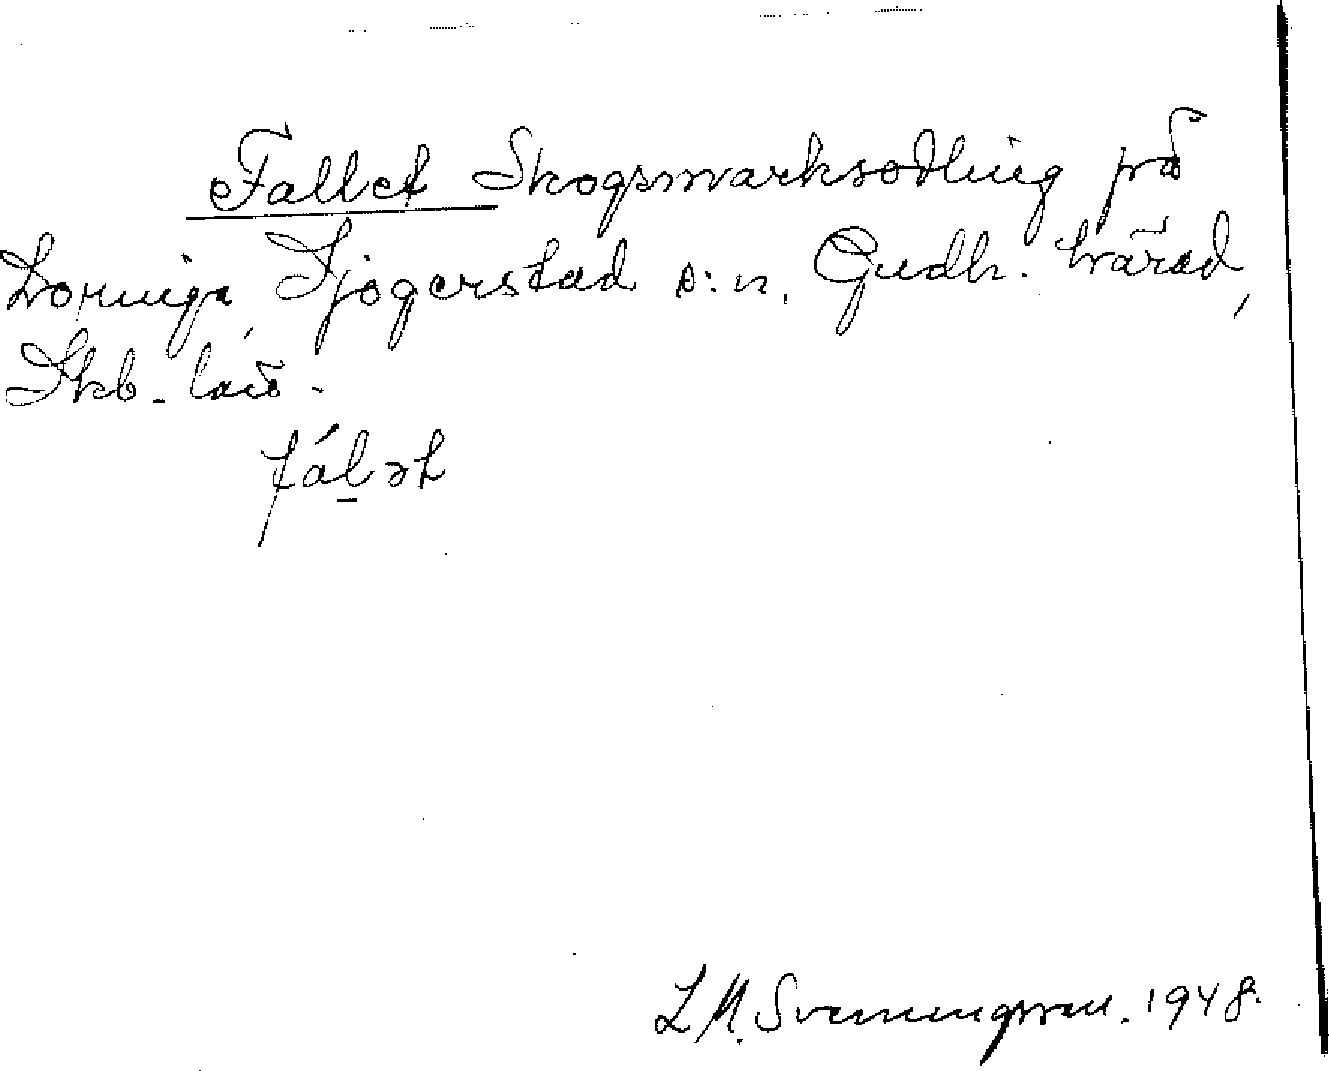 Fallet Skogsmarksodling på
Lovunga, Sjogerstad s:n. Gudh. härad,
Skb. län.
fálət
L. M. Svenungsson. 1948.